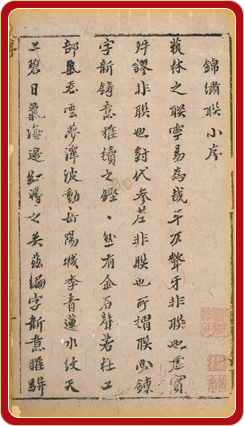 錦繡聯小序
林之聯寧易為哉平仄聲牙非聯也虛實
舛謬非聯也對代參差非聯也所謂聯必鍊
字新鑄意雅讀之鏗〻然有金石聲若杜工
部氣蒸雲夢澤波動岳陽城李青蓮水紋天
上碧日氣海邊紅之茲編字新意雅駢